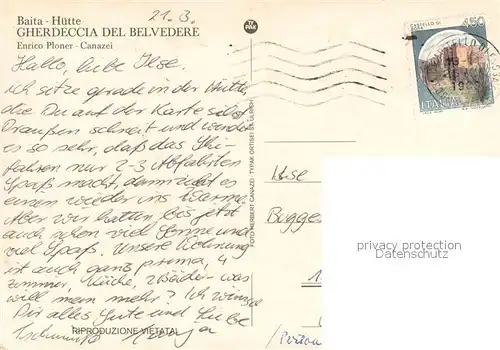 Baita - Hütte
GHERDECCIA DEL BELVEDERE
Enrico Ploner - Canazei
21. 3.
Hallo, liebe Ilse.
Ich sitze grade in der Hütte,
die Du auf der Karte siehst.
Draußen schneit und windet
es so sehr, daß das Ski-
fahren nur 2-3 Abfahrten
Spaß macht, dann zieht es
einen wieder ins Warme.
Aber wir hatten bis jetzt
auch schon viel Sonne und
viel Spaß. Unsere Wohnung
ist auch ganz prima, 4
Zimmer, Küche, 2 Bäder - was
will man mehr? Ich wünsche
Dir alles Gute und Liebe
RIPRODUZIONE VIETATA
FOTO HERBERT, CANAZEI - TYPAK ORTISEI
TY
PAK
CASTELLO DI
450
ITALIA
19
Ilse
Bugge
1
(Person
privacy protection
Datenschutz